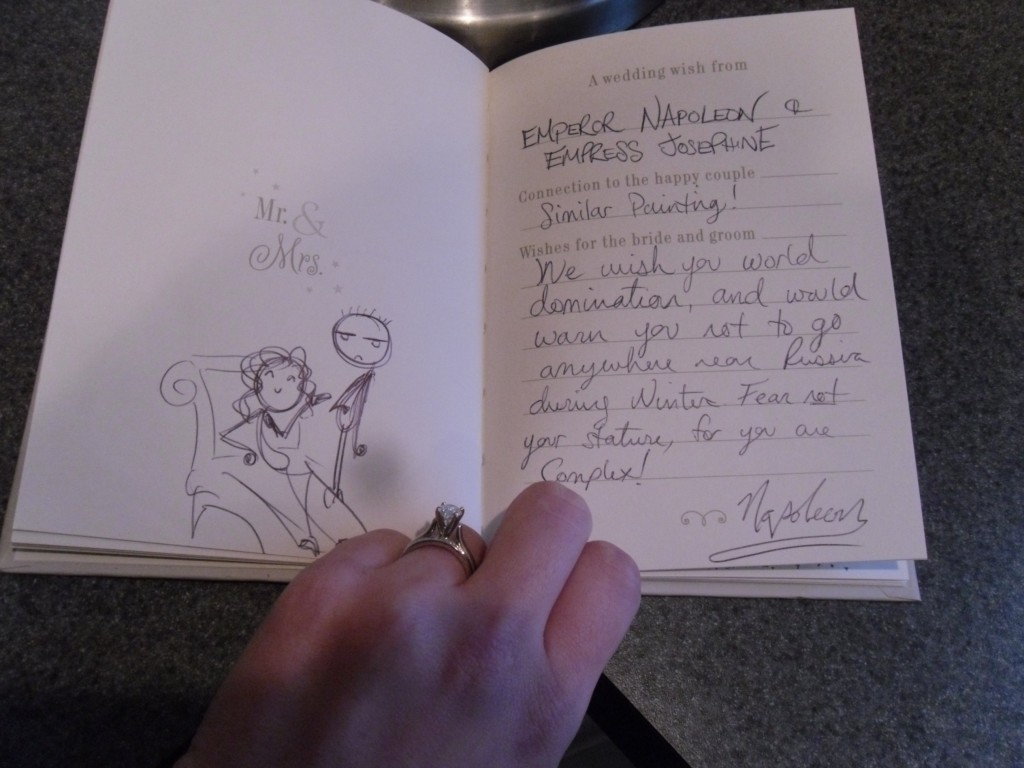 Mr. &
Mrs.
A wedding wish from
EMPEROR NAPOLEON &
EMPRESS JOSEPHINE
Connection to the happy couple
Similar Painting!
Wishes for the bride and groom
We wish you world
domination, and would
warn you not to go
anywhere near Russia
during Winter Fear not
your stature, for you are
Complex!
Napoleon